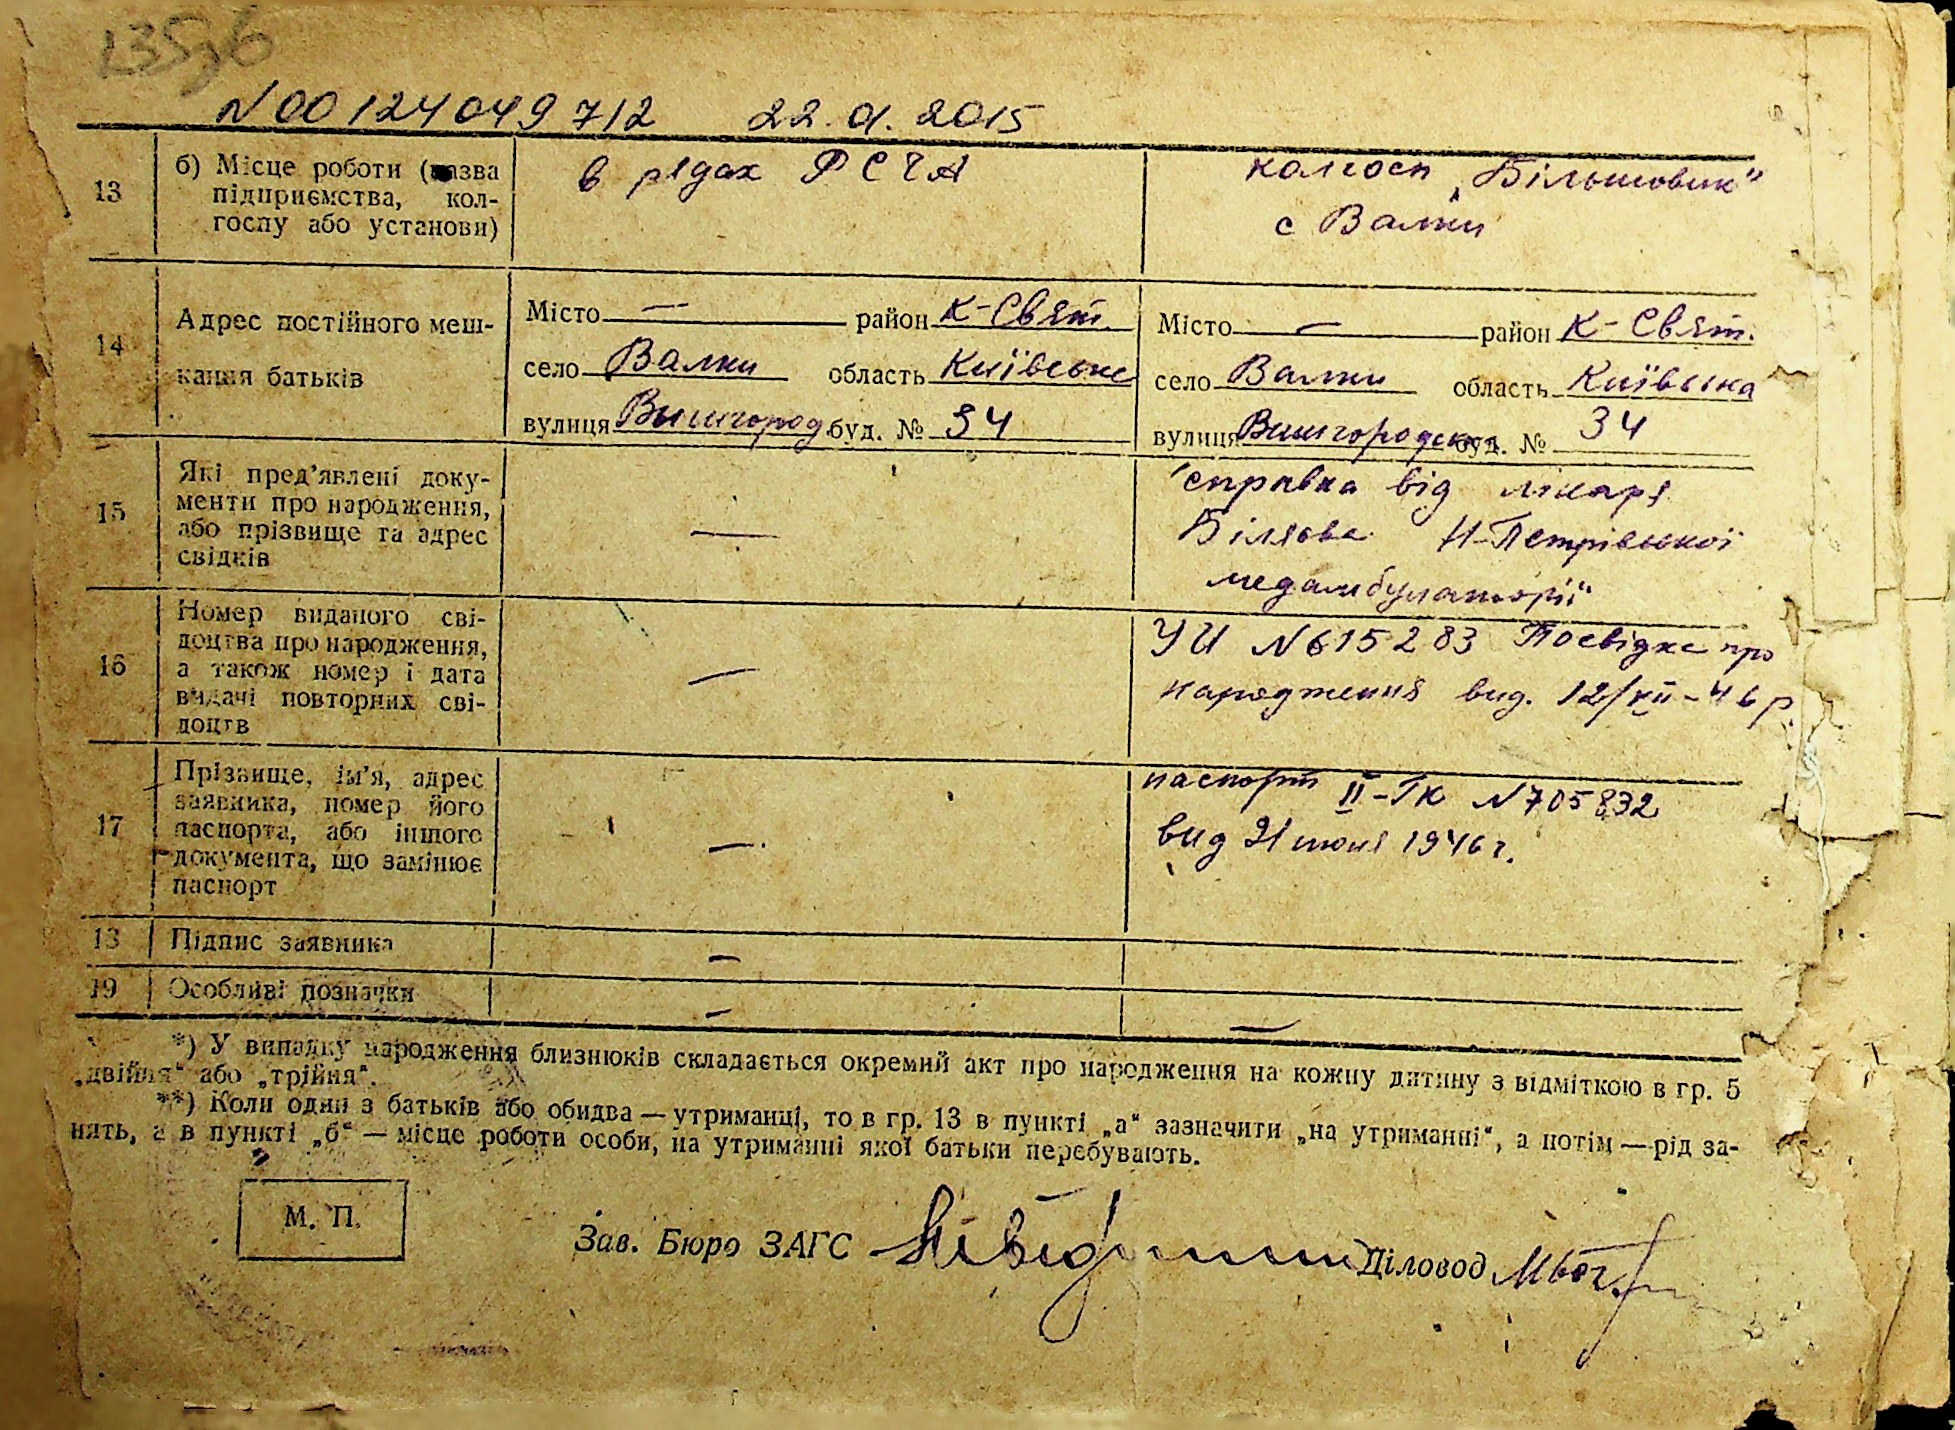 N00124049712 22.01.2015
13 б) Місце роботи (назва
підприємства, кол-
госпу або установи)
в рядах РСЧА
колгосп „Більшовик"
с Валки
14 Адрес постійного меш-
кання батьків
Місто — район К-Свят.
село Валки область Київське
вулиця Вишгород буд. № 34
Місто — район К-Свят.
село Валки область Київська
вулиця Вишгородська буд. № 34
15 Які пред'явлені доку-
менти про народження,
або прізвище та адрес
свідків
—
справка від лікаря
Біляєва Н-Петрівської
медамбулаторії
16 Номер виданого сві-
доцтва про народження,
а також номер і дата
видачі повторних сві-
доцтв
—
УИ N615283 Посвідка про
народження вид. 12/XII-46 р
17 Прізвище, ім'я, адрес
заявника, номер його
паспорта, або іншого
документа, що замінює
паспорт
—
паспорт II-ГК N705832
вид 21 июня 1946 г.
18 Підпис заявника
—
19 Особливі позначки
— —
*) У випадку народження близнюків складається окремий акт про народження на кожну дитину з відміткою в гр. 5
„двійня" або „трійня".
**) Коли один з батьків або обидва — утриманці, то в гр. 13 в пункті „а" зазначити „на утриманні", а потім — рід за-
нять, а в пункті „б" — місце роботи особи, на утриманні якої батьки перебувають.
М. П.
Зав. Бюро ЗАГС Діловод